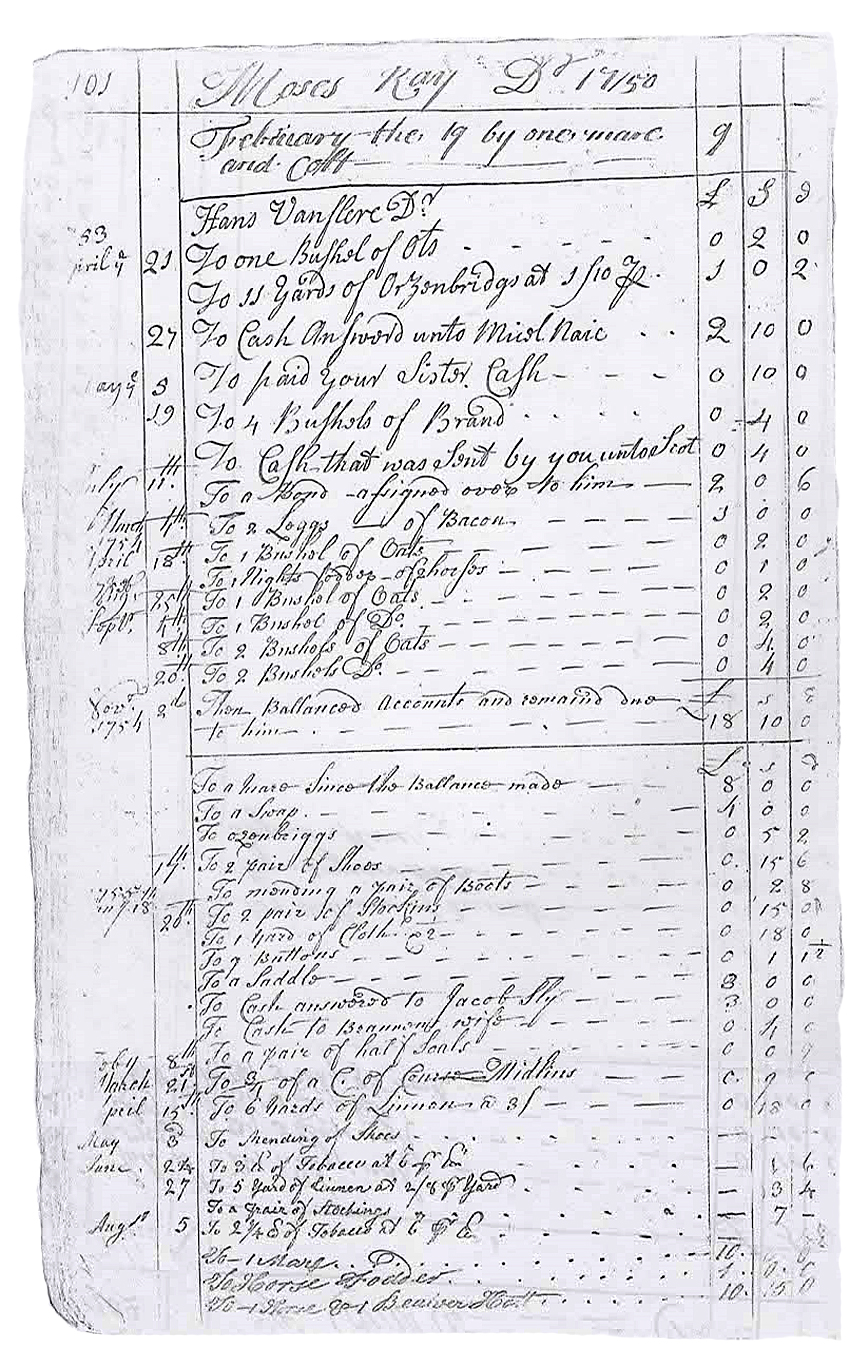 101 Moses Kay Dr 1750
February the 19 by one mare 9
and Colt
Hans Vanslere Dr £ S D
53
April ye 21 To one Bushel of Ots 0 2 0
To 11 Yards of Orzenbridgs at 1/10 1 0 2
27 To Cash Answerd unto Micel Naic 2 10 0
May ye 5 To paid your Sister Cash 0 10 0
19 To 4 Bushels of Brand 0 4 0
To Cash that was Sent by you unto Scot 0 4 0
July 11th To a Bond asigned over to him 2 0 6
March 4th To 2 Leggs of Bacon 1 0 0
1754
April 18th To 1 Bushel of Oats 0 2 0
To 1 Nights foddor of 2 horses 0 1 0
25th To 1 Bushel of Oats 0 2 0
Septr. 4th To 1 Bushel of Do. 0 2 0
8th To 2 Bushels of Oats 0 4 0
20th To 2 Bushels Do. 0 4 0
Novr 2d Then Ballanced Accounts and remaind due £ s d
1754 to him 18 10 0
£ s d
To a mare Since the Ballance made 8 0 0
To a Swap 4 0 0
To ozenbriggs 0 5 2
To 2 pair of Shoes 0 15 6
1755
To mending a pair of Boots 0 2 8
20th To 2 pair of Stockins 0 15 0
To 1 Yard of Cloth 0 18 0
To 9 Buttons 0 1 1 1/2
To a Saddle 3 0 0
To Cash answered to Jacob Fly 3 0 0
To Cash to Beamons wife 0 4 0
To a pair of half Soals 0 0 9
Feby 8th
March 21st To 3/4 of a C. of Course Midlins 0 9
April 15th To 6 Yards of Linnon a 3/ 0 18 0
May 3 To Mending of Shoes
June 24 To 3 lb of Tobacco at 6 pr lb 1 6
27 To 5 Yard of Linnen at 2/8 pr Yard 13 4
To a pair of Stockings 7
Augst 5 To 2 1/4 lb of Tobacco at 6 pr lb
To 1 Mare 10
To Horse Fodder
To 1 Horse & 1 Beaiver Hatt 10 15 0